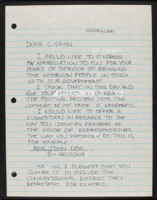 DEAR C-SPAN:
I WOULD LIKE TO EXPRESS
MY APPRECIATION TO YOU FOR YOUR
YEARS OF SERVICE OF BRINGING
THE AMERICAN PEOPLE IN TOUCH
WITH OUR GOVERNMENT.
I THINK THAT IN THIS DAY AND
AGE YOUR
THE POLITICAL PROCESS INTO THE
COMFORT OF AS MANY HOMES AS POSSIBLE.
I WOULD LIKE TO OFFER A
SUGGESTION IN REGARDS TO THE
WAY YOU IDENTIFY MEMBERS OF
THE HOUSE OF REPRESENTATIVES.
THE WAY YOU PRESENTLY DO THIS IS,
FOR EXAMPLE:
REP. JOHN DOE
D-ARIZONA
I SUGGEST THAT YOU
CHANGE IT TO INCLUDE THE
CONGRESSIONAL DISTRICT THEY
REPRESENT. FOR EXAMPLE: